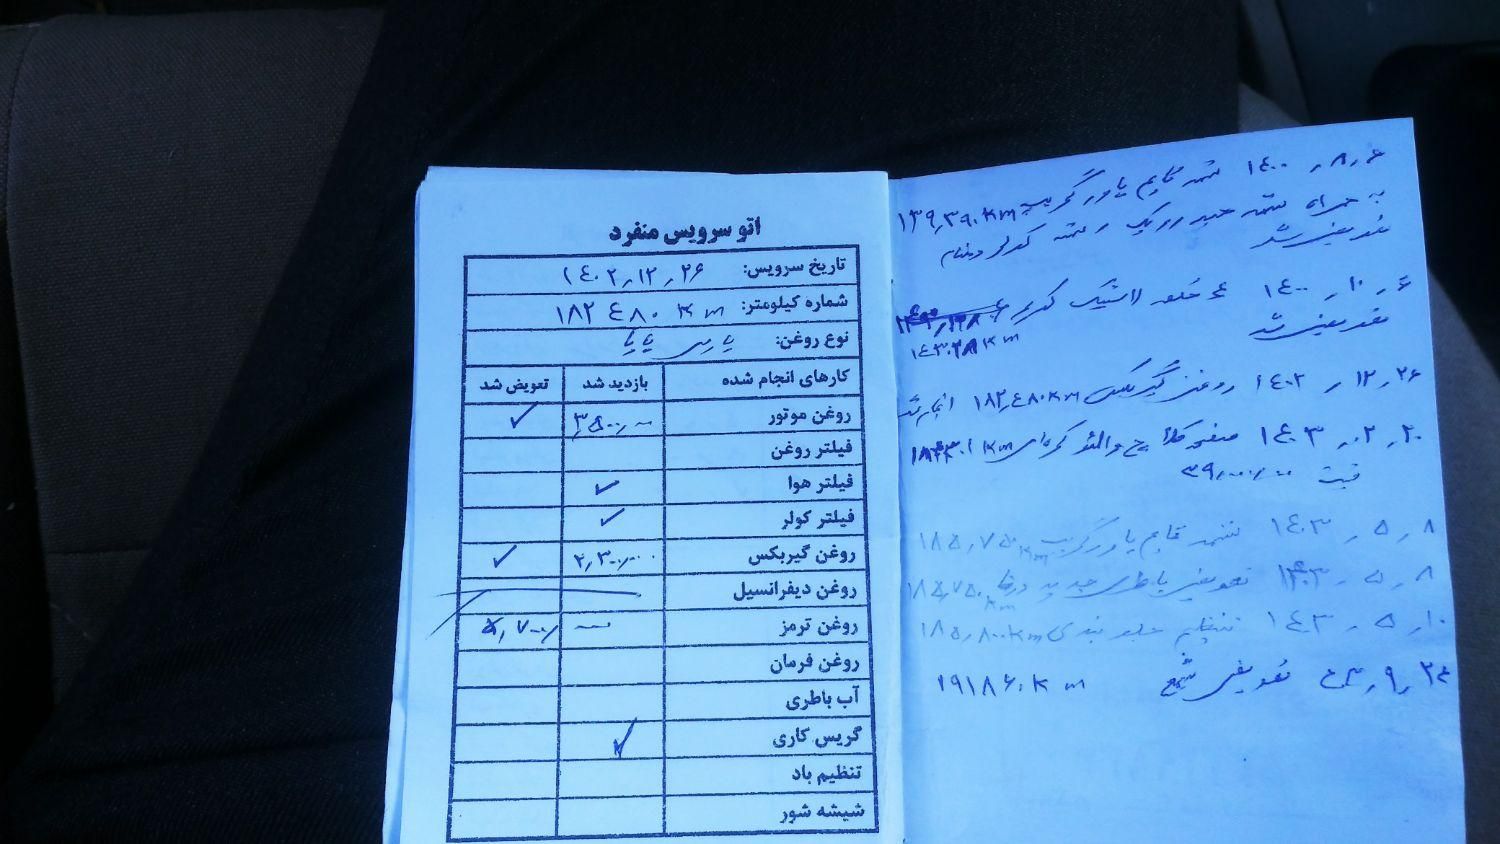 اتو سرویس منفرد
تاریخ سرویس: ۱۴۰۲٫۱۲٫۲۶
شماره کیلومتر: ۱۸۲۴۸۰ KM
نوع روغن:
کارهای انجام شده بازدید شد تعویض شد
روغن موتور ۳٫۵۰۰٫۰۰۰ ✓
فیلتر روغن
فیلتر هوا ✓
فیلتر کولر ✓
روغن گیربکس ۲٫۳۰۰٫۰۰۰ ✓
روغن دیفرانسیل
روغن ترمز ۵٫۷۰۰٫
روغن فرمان
آب باطری
گریس کاری ✓
تنظیم باد
شیشه شور
۱۴۰۰٫۸٫۶ تسمه تایم پاور گریپ ۱۳۹٫۳۹۰ KM
به همراه تسمه کولر
تعویض شد
۱۴۰۰٫۱۰٫۶ ۴ حلقه لاستیک
تعویض شد ۱۴۳۰۲۸ KM
۱۴۰۲٫۱۲٫۲۶ روغن گیربکس ۱۸۲٫۴۸۰ KM انجام شد
۱۴۰۳٫۰۲٫۲۰ صفحه کلاچ والئو کره‌ای KM
قیمت ۳۹٫۰۰۰٫۰۰۰
۱۴۰۳٫۵٫۸ تسمه تایم پاور گریپ ۱۸۵٫۷۵۰ KM
۱۴۰۳٫۵٫۸ تعویض باطری جدید ۱۸۵٫۷۵۰ KM
۱۴۰۳٫۵٫۱۰ تنظیم جلو بندی ۱۸۵٫۸۰۰ KM
۹٫۲۴ تعویض شمع ۱۹۱۸۶۰ KM